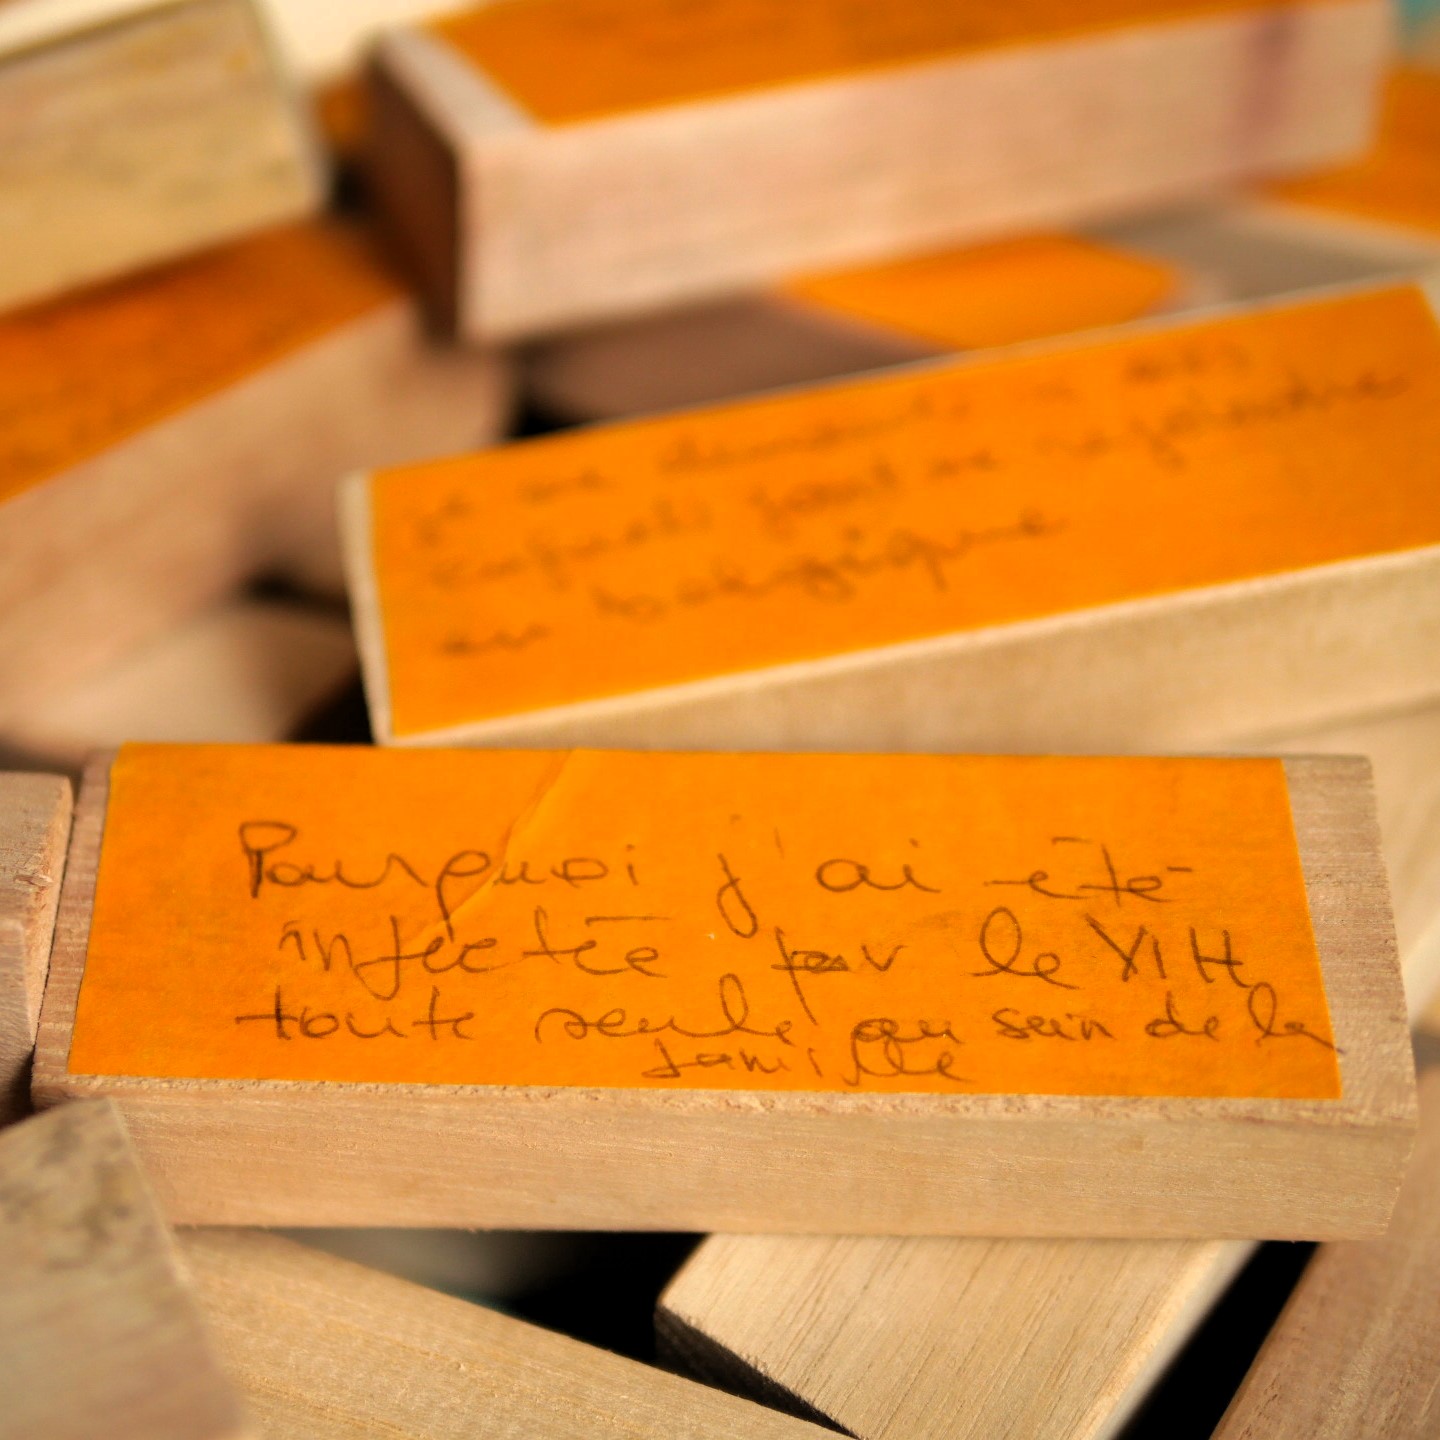 je me demande
enfants font me rejoindre
en belgique
Pourquoi j'ai été
infectée par le VIH
toute seule au sein de la
famille